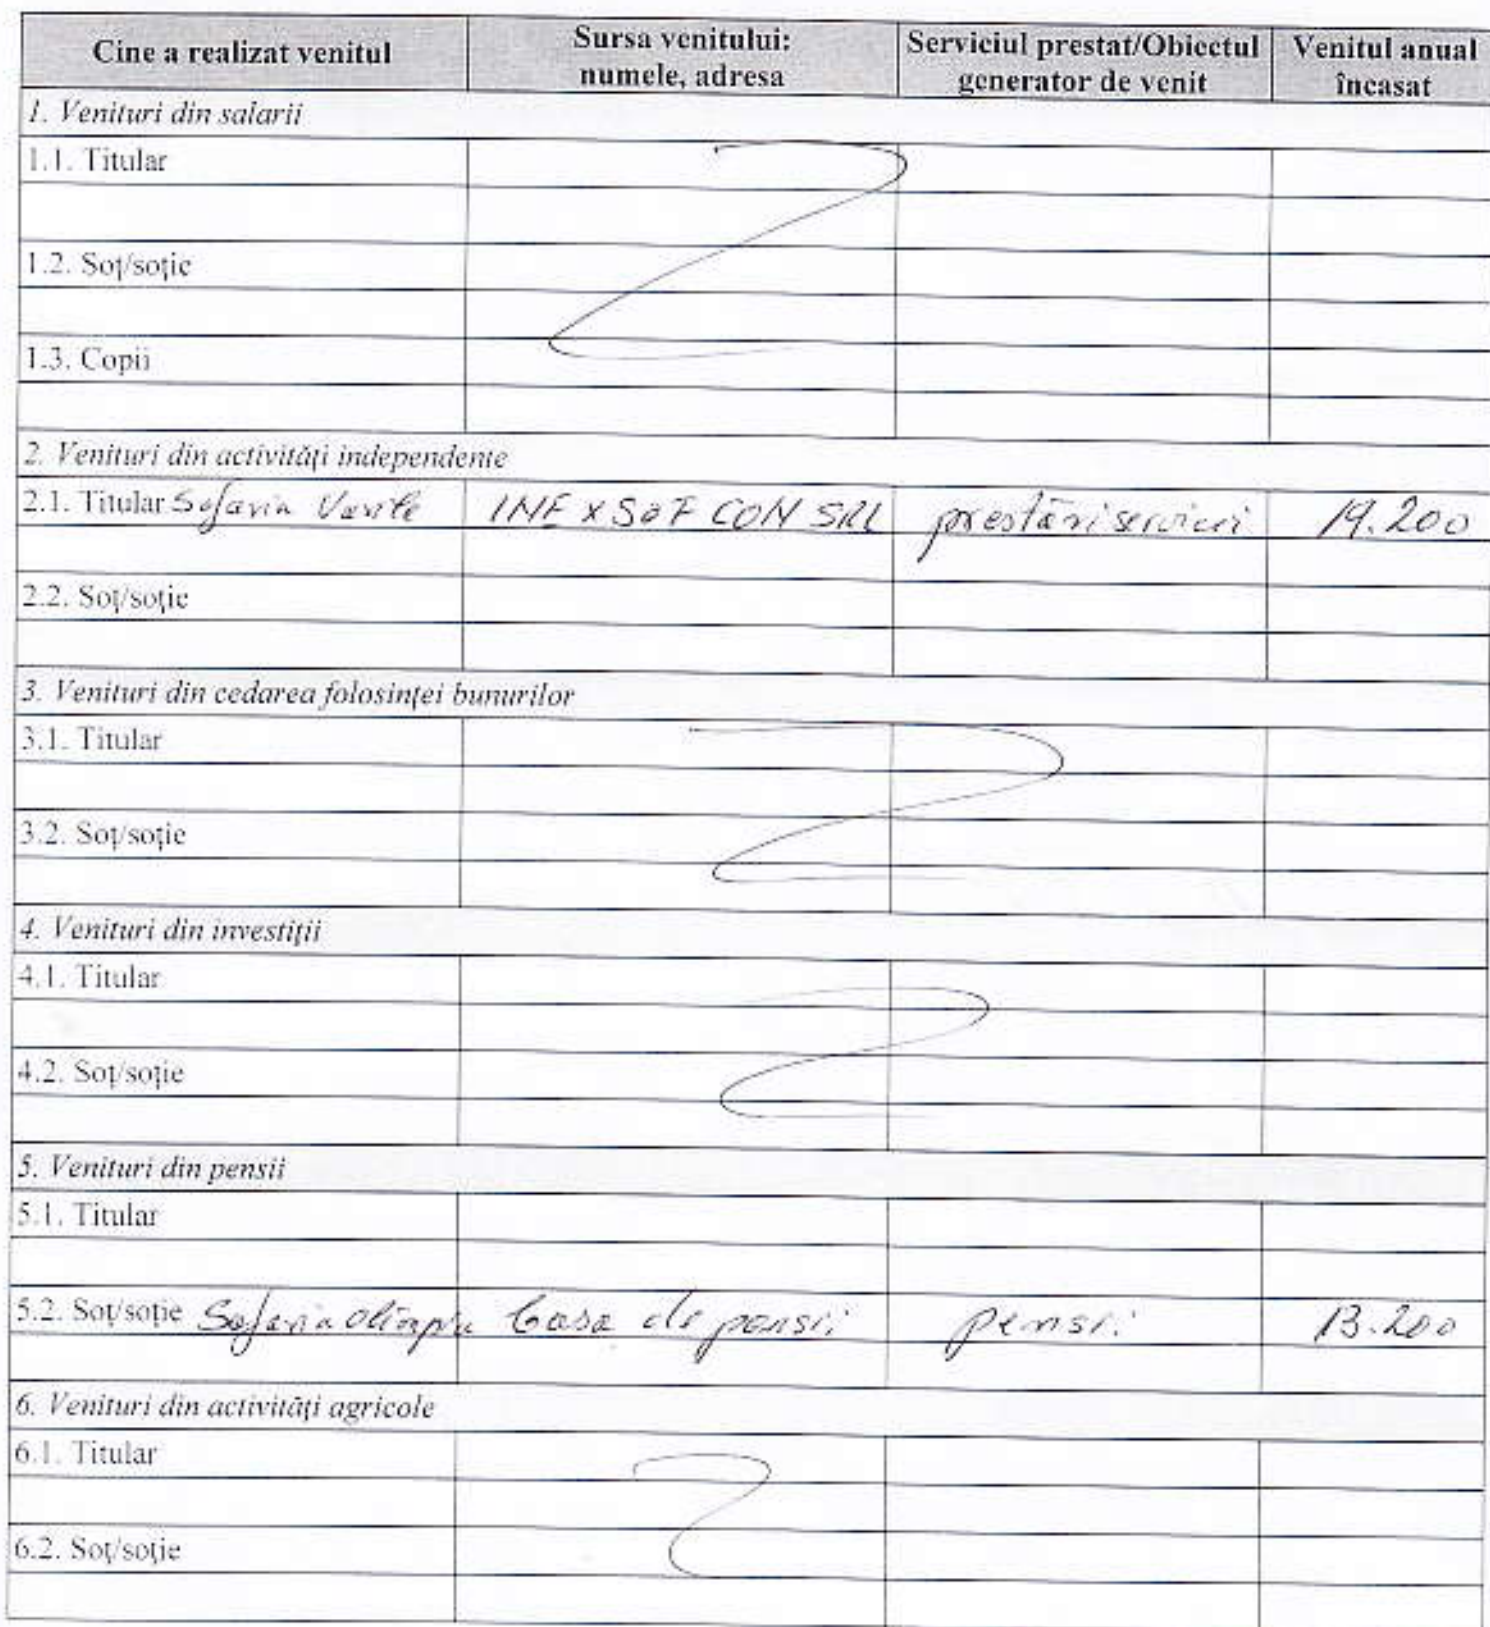 Cine a realizat venitul | Sursa venitului: numele, adresa | Serviciul prestat/Obiectul generator de venit | Venitul anual încasat
1. Venituri din salarii
1.1. Titular
1.2. Soţ/soţie
1.3. Copii
2. Venituri din activităţi independente
2.1. Titular Safavia Vasile | INEXSOF CON SRL | prestări servicii | 19.200
2.2. Soţ/soţie
3. Venituri din cedarea folosinţei bunurilor
3.1. Titular
3.2. Soţ/soţie
4. Venituri din investiţii
4.1. Titular
4.2. Soţ/soţie
5. Venituri din pensii
5.1. Titular
5.2. Soţ/soţie Olimpia | Casa de pensii | pensii | 13.200
6. Venituri din activităţi agricole
6.1. Titular
6.2. Soţ/soţie